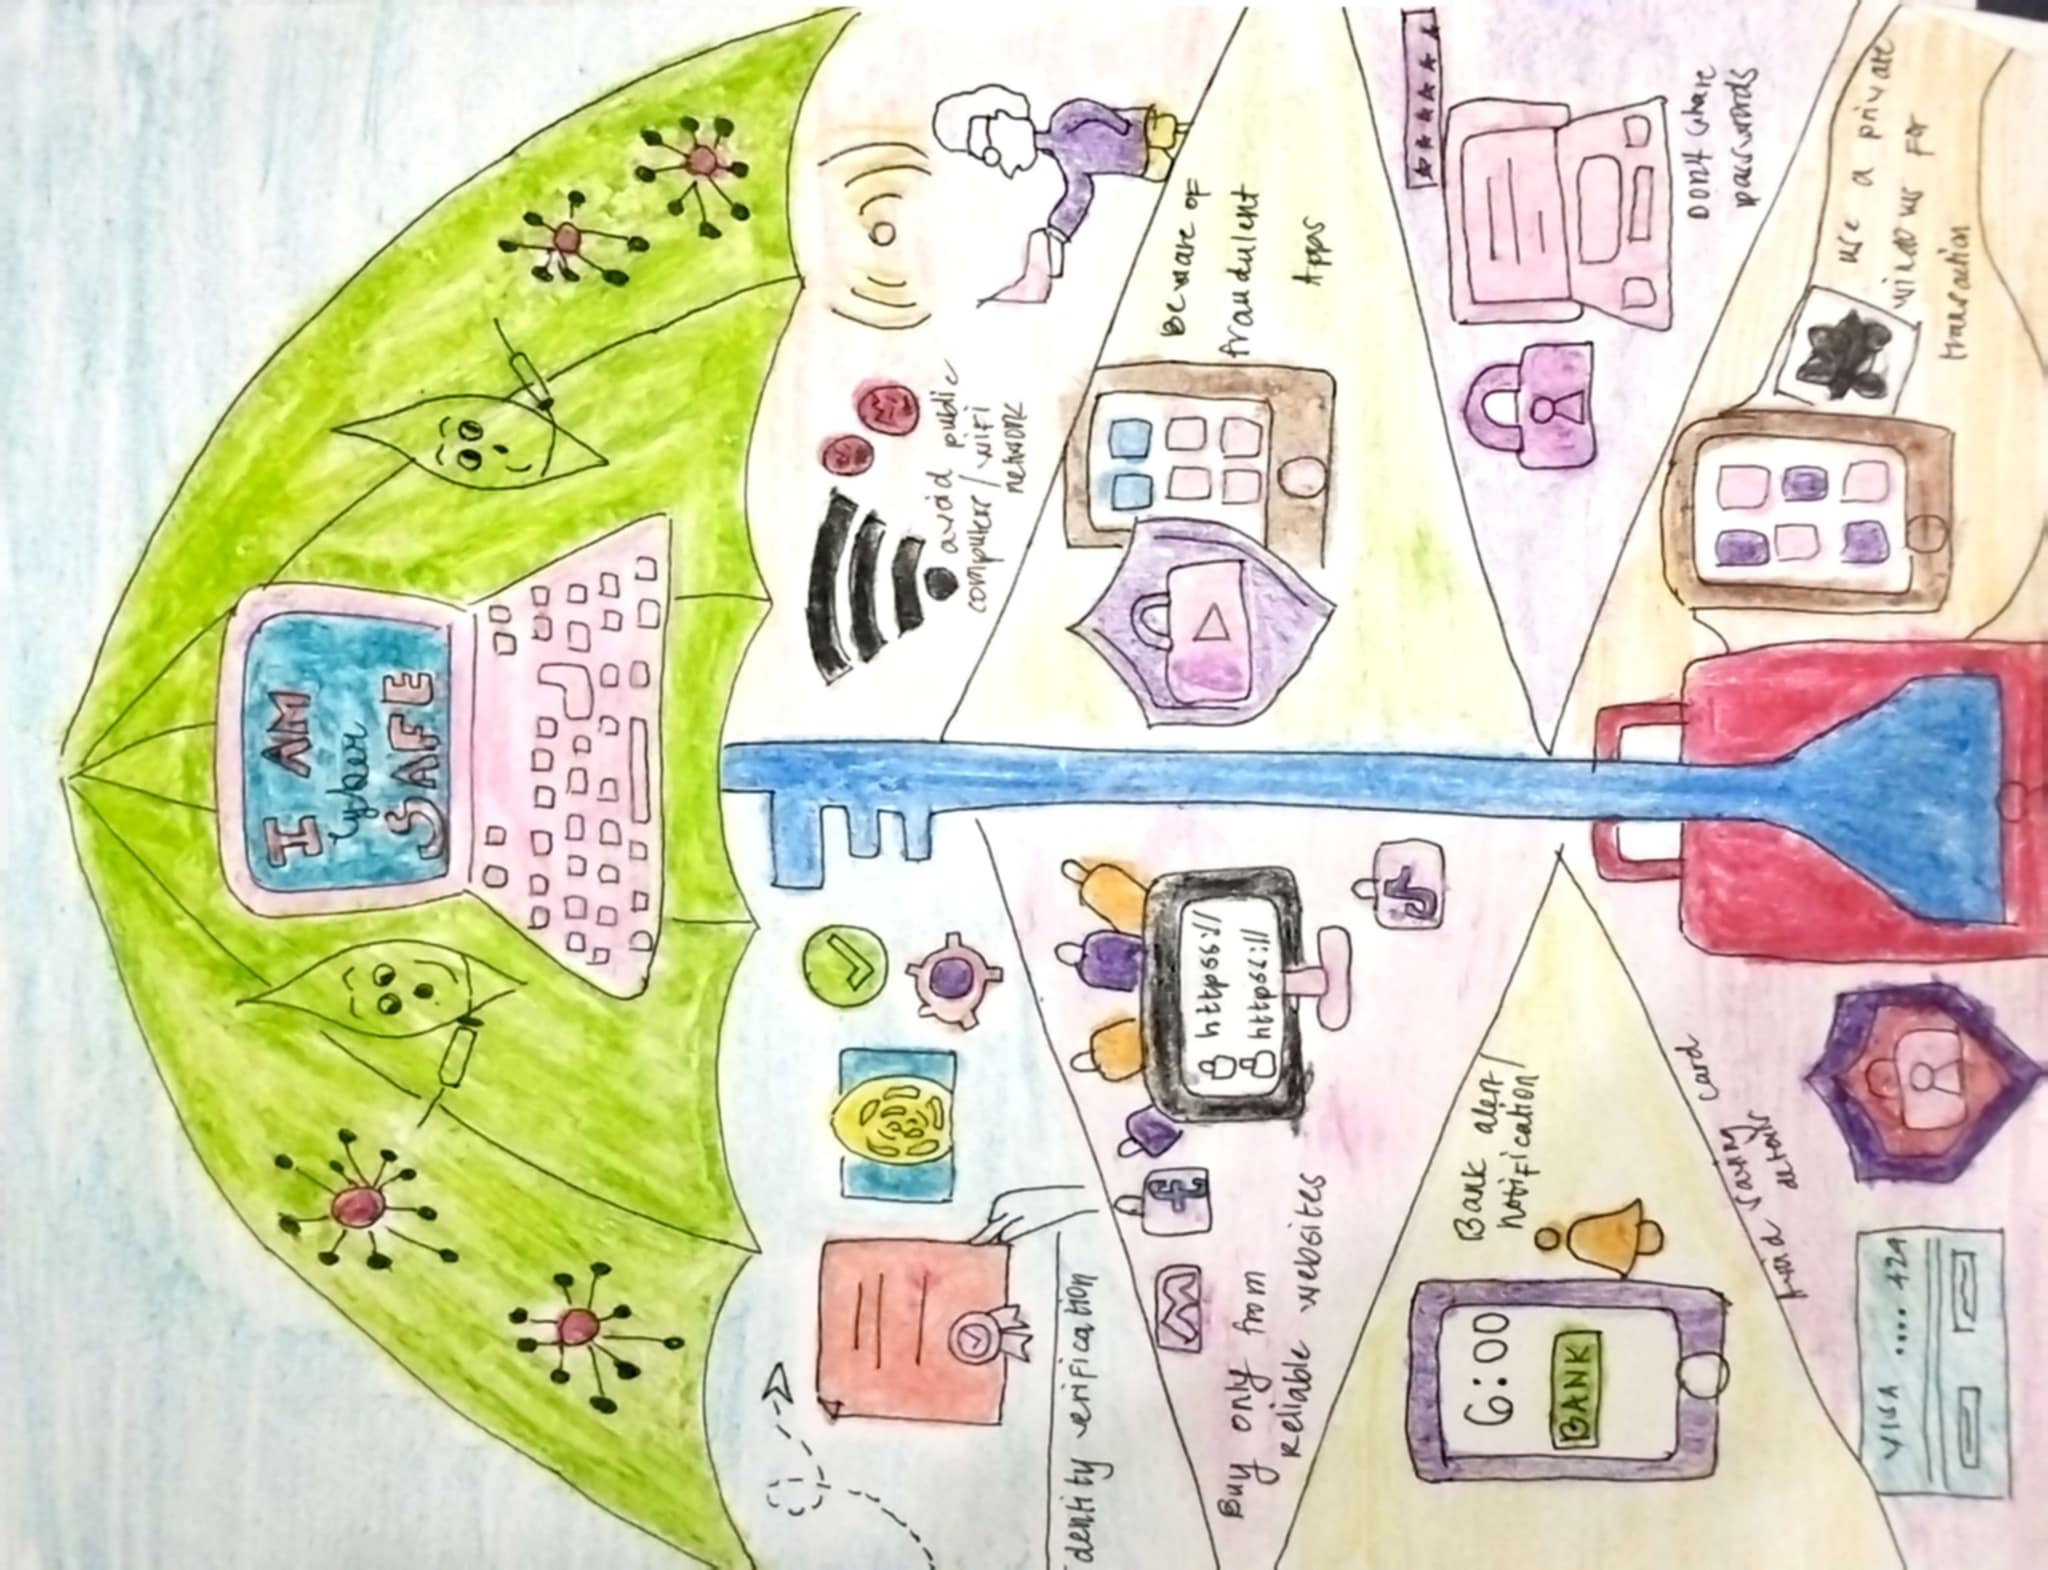 I AM
Cyber
SAFE
dentity verification
avoid public
computers/wifi
network
Buy only from
Reliable websites
httpss://
httpss://
Beware of
fraudulent
Apps
6:00
BANK
Bank alert/
notification
Don't share
passwords
Avoid saving card
details
VISA .... 424
use a private
windows for
transaction